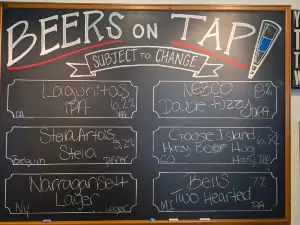 BEERS ON TAP
SUBJECT TO CHANGE
Lagunitas
IPA 6.2%
CA IPA
NEBCO 8%
Double Fuzzy
IPA
Stella Artois
Stella 5.2%
Belgium pilsner
Goose Island 6.8%
Hazy Beer Hug
CO Hazy IPA
Narragansett
Lager
NY Lager
Bells 7%
Two Hearted
MI IPA